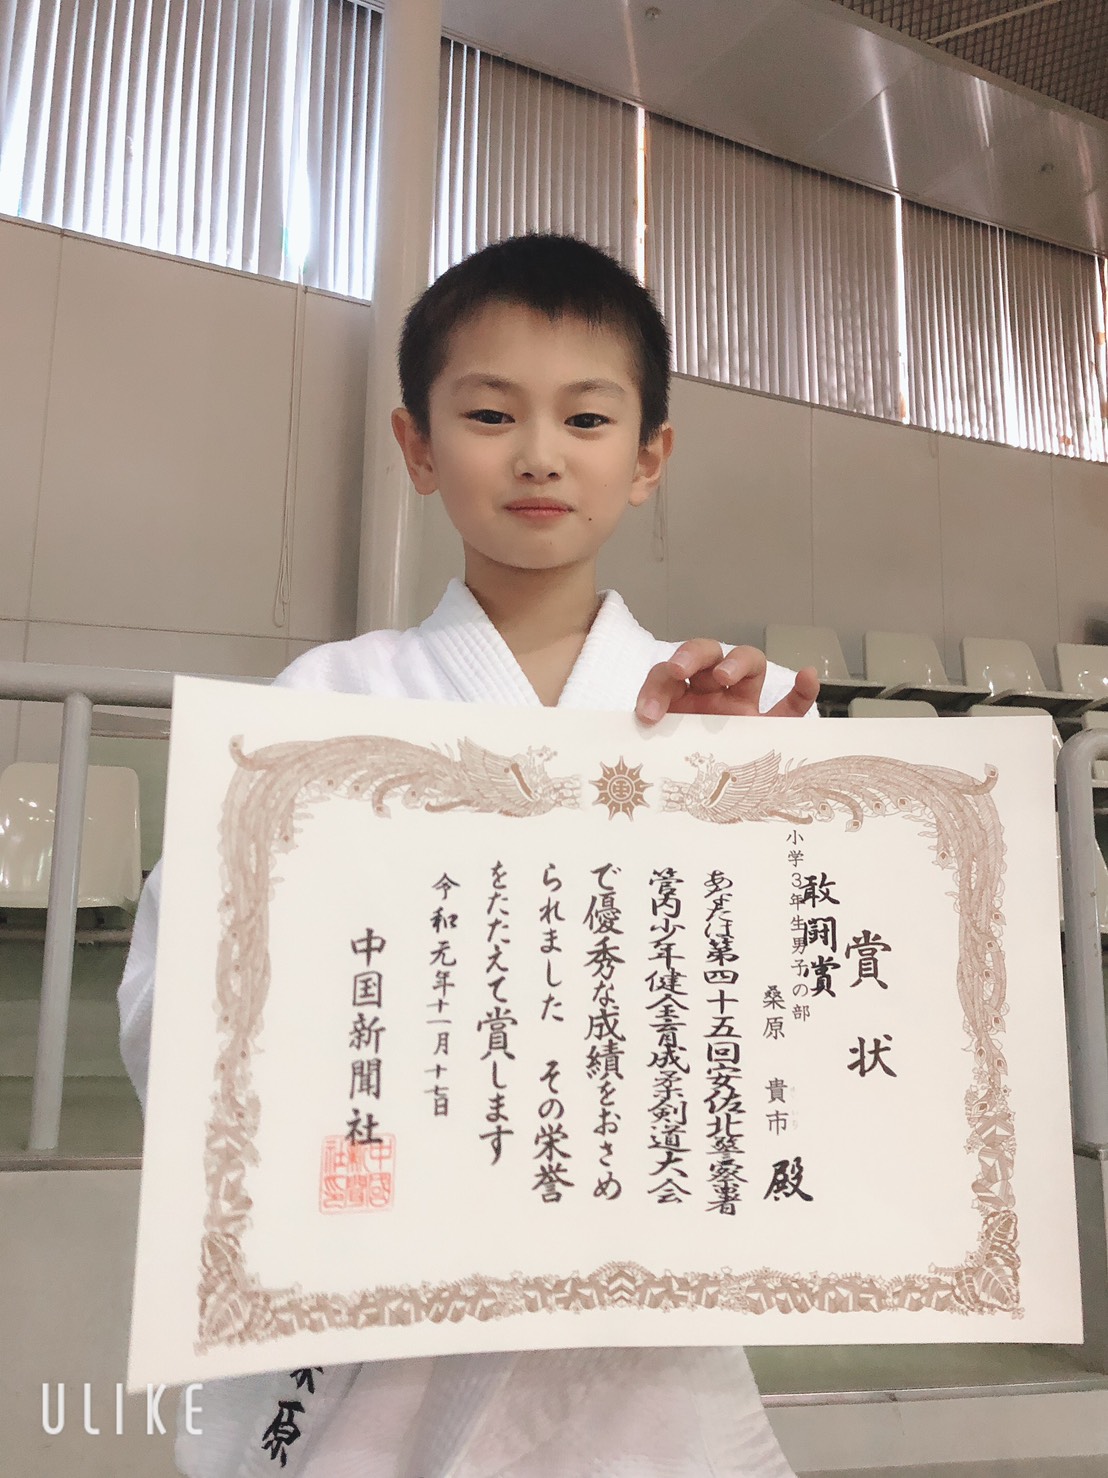 賞状
敢闘賞
小学3年生男子の部
桑原 貴市 殿
あなたは第四十五回安佐北警察署
管内少年健全育成柔剣道大会
で優秀な成績をおさめ
られました その栄誉
をたたえて賞します
令和元年十一月十七日
中国新聞社
中國新聞社印
桑原
ULIKE